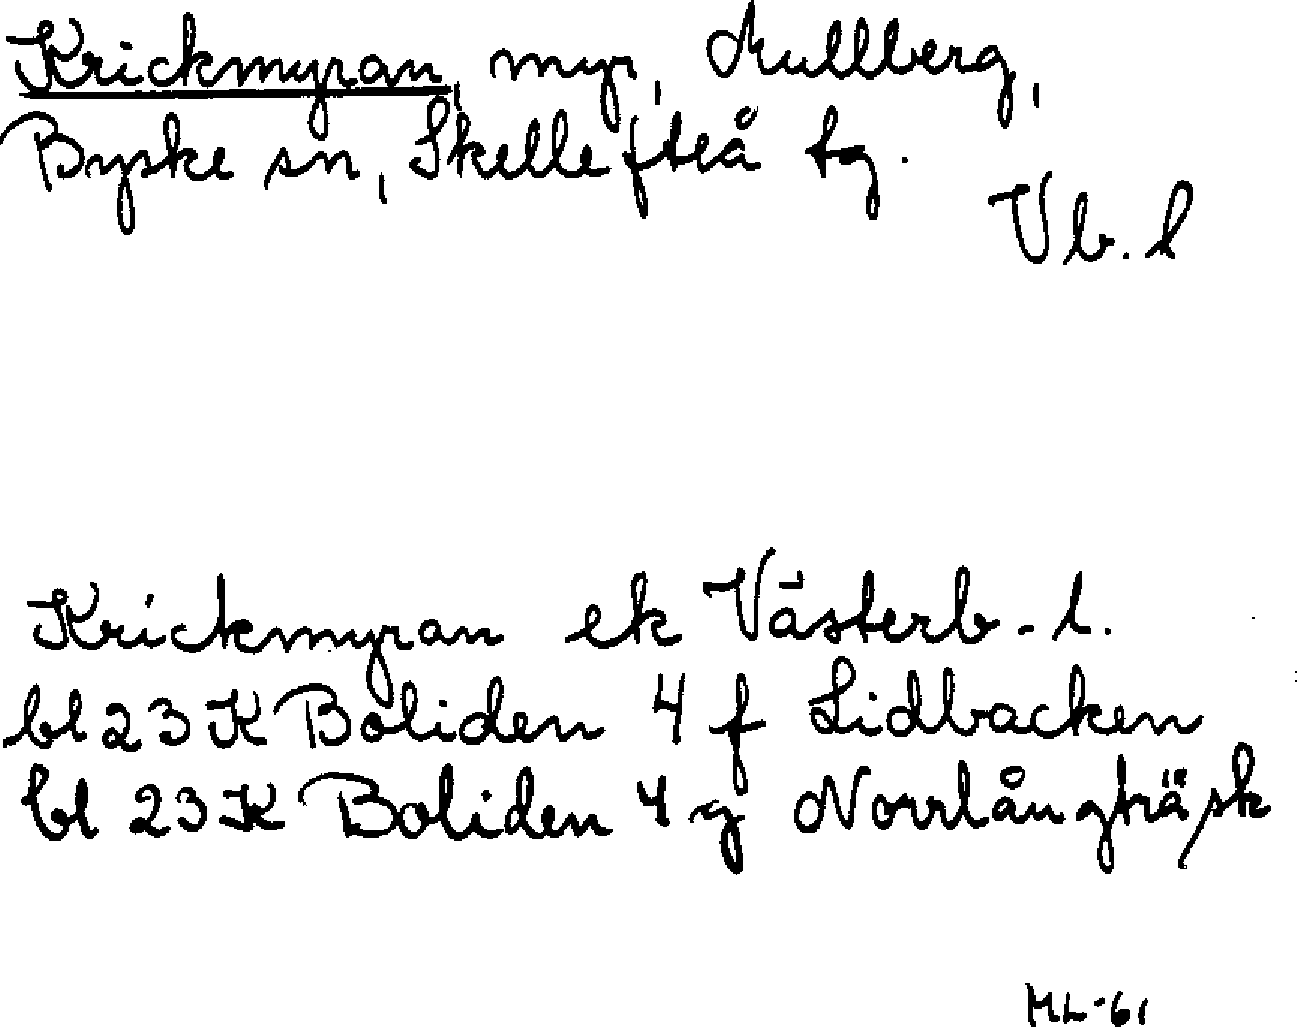 Krickmyran, myr, Mullberg,
Byske sn, Skellefteå tg.
Vb. l
Krickmyran ek Västerb-l.
bl 23 K Boliden 4 f Lidbacken
bl 23 K Boliden 4 g Norrlångträsk
ML-61